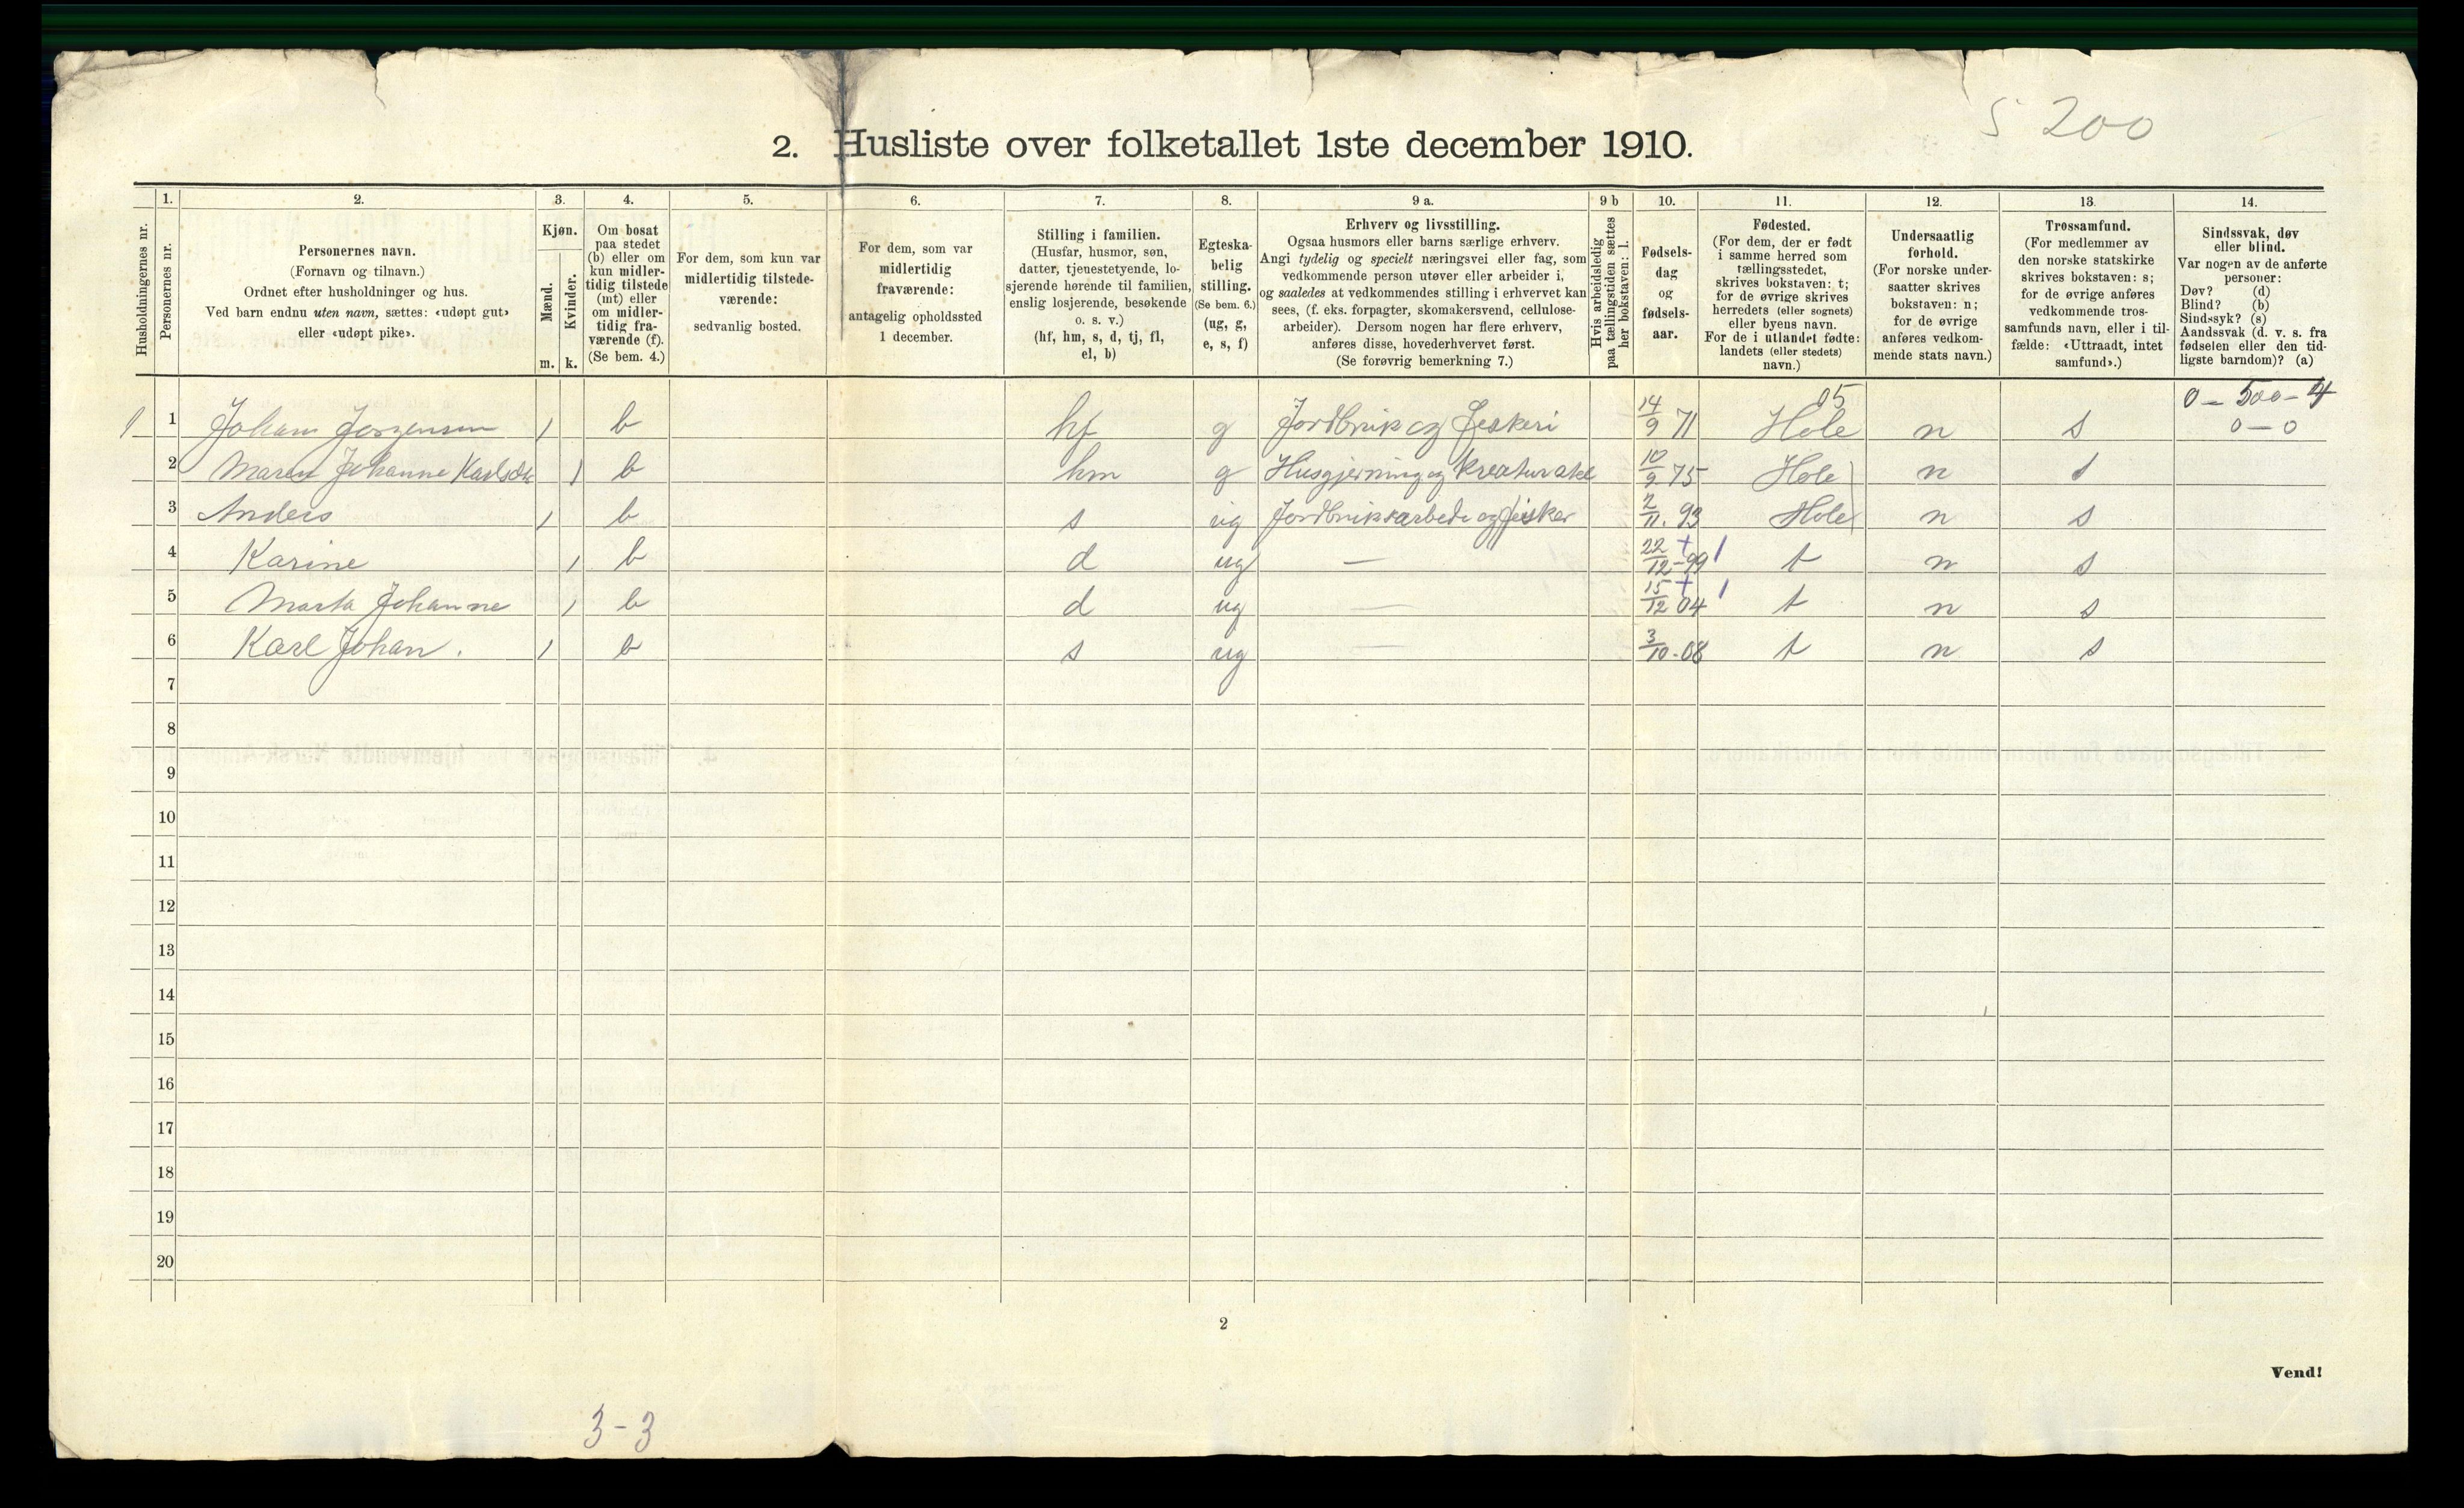 S 200
2. Husliste over folketallet 1ste december 1910.
Husholdningernes nr.
1.
Personernes nr.
2.
Personernes navn.
(Fornavn og tilnavn.)
Ordnet efter husholdninger og hus.
Ved barn endnu uten navn, sættes: «udøpt gut»
eller «udøpt pike».
3.
Kjøn.
Mænd.
Kvinder.
m. k.
4.
Om bosat
paa stedet
(b) eller om
kun midler-
tidig tilstede
(mt) eller
om midler-
tidig fra-
værende (f).
(Se bem. 4.)
5.
For dem, som kun var
midlertidig tilstede-
værende:
sedvanlig bosted.
6.
For dem, som var
midlertidig
fraværende:
antagelig opholdssted
1 december.
7.
Stilling i familien.
(Husfar, husmor, søn,
datter, tjenestetyende, lo-
sjerende hørende til familien,
enslig losjerende, besøkende
o. s. v.)
(hf, hm, s, d, tj, fl,
el, b)
8.
Egteska-
belig
stilling.
(Se bem. 6.)
(ug, g,
e, s, f)
9 a.
Erhverv og livsstilling.
Ogsaa husmors eller barns særlige erhverv.
Angi tydelig og specielt næringsvei eller fag, som
vedkommende person utøver eller arbeider i,
og saaledes at vedkommendes stilling i erhvervet kan
sees, (f. eks. forpagter, skomakersvend, cellulose-
arbeider). Dersom nogen har flere erhverv,
anføres disse, hovederhvervet først.
(Se forøvrig bemerkning 7.)
9 b
Hvis arbeidsledig
paa tællingstiden sættes
her bokstaven: l.
10.
Fødsels-
dag
og
fødsels-
aar.
11.
Fødested.
(For dem, der er født
i samme herred som
tællingsstedet,
skrives bokstaven: t;
for de øvrige skrives
herredets (eller sognets)
eller byens navn.
For de i utlandet fødte:
landets (eller stedets)
navn.)
12.
Undersaatlig
forhold.
(For norske under-
saatter skrives
bokstaven: n;
for de øvrige
anføres vedkom-
mende stats navn.)
13.
Trossamfund.
(For medlemmer av
den norske statskirke
skrives bokstaven: s;
for de øvrige anføres
vedkommende tros-
samfunds navn, eller i til-
fælde: «Uttraadt, intet
samfund».)
14.
Sindssvak, døv
eller blind.
Var nogen av de anførte
personer:
Døv? (d)
Blind? (b)
Sindssyk? (s)
Aandssvak (d. v. s. fra
fødselen eller den tid-
ligste barndom)? (a)
05 0 – 500 – 4
1 1 Johan Jørgensen 1 b hf g Jordbruk og Feskeri 14/9 71 Hole n s 0 – 0
2 Maren Johanne Karlsdtr 1 b hm g Husgjerning og Kreaturstel 10/9 75 Hole n s
3 Anders 1 b s ug Jordbruksarbeide og Fisker 2/11. 93 Hole n s
4 Karine 1 b d ug — 22/12–99 + 1 t n s
5 Marta Johanne 1 b d ug — 15/12 04 + 1 t n s
6 Karl Johan. 1 b s ug — 3/10–08 t n s
7
8
9
10
11
12
13
14
15
16
17
18
19
20
2
Vend!
3–3